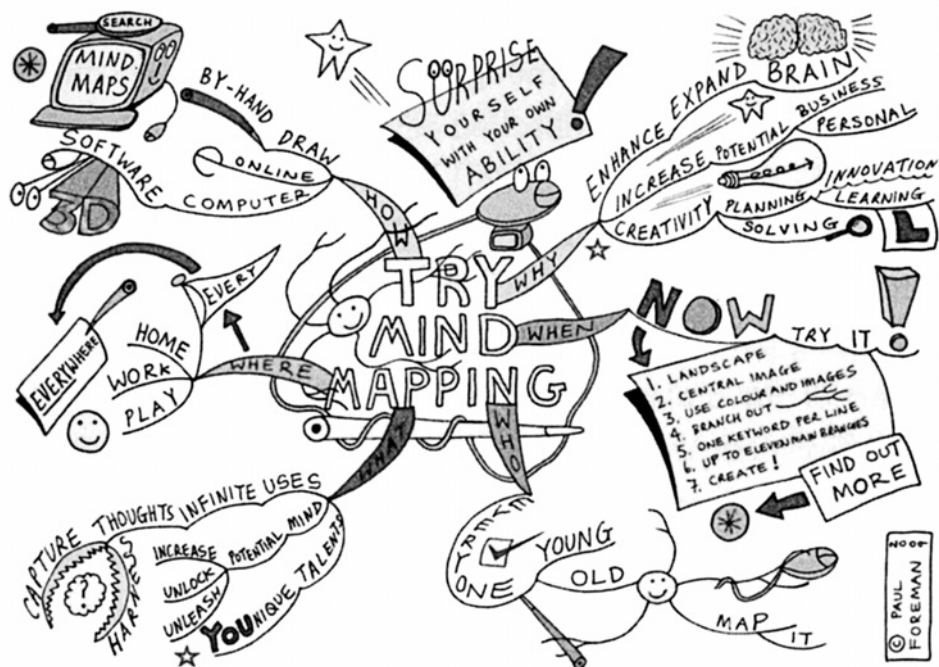 TRY
MIND
MAPPING
HOW
BY-HAND DRAW
ONLINE
COMPUTER
SOFTWARE
3D
SEARCH
MIND
MAPS
SURPRISE
YOURSELF
WITH YOUR OWN
ABILITY!
WHY
ENHANCE EXPAND BRAIN
INCREASE POTENTIAL BUSINESS
PERSONAL
CREATIVITY PLANNING INNOVATION
LEARNING
SOLVING
L
WHEN
NOW
TRY IT!
1. LANDSCAPE
2. CENTRAL IMAGE
3. USE COLOUR AND IMAGES
4. BRANCH OUT
5. ONE KEYWORD PER LINE
6. UP TO ELEVEN MAIN BRANCHES
7. CREATE!
FIND OUT
MORE
WHO
EVERYONE
YOUNG
OLD
MAP
IT
WHAT
MIND
THOUGHTS INFINITE USES
CAPTURE
HARNESS
POTENTIAL
INCREASE
UNLOCK
UNLEASH
YOUNIQUE TALENTS
WHERE
EVERY
EVERYWHERE
HOME
WORK
PLAY
© PAUL
FOREMAN